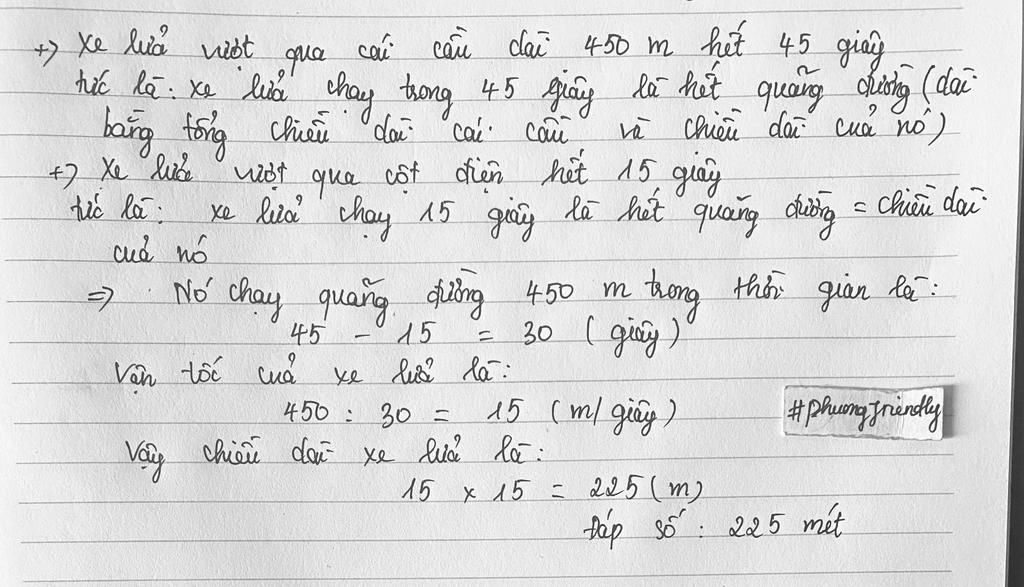 +) Xe lửa vượt qua cái cầu dài 450 m hết 45 giây
tức là: xe lửa chạy trong 45 giây là hết quãng đường (dài
bằng tổng chiều dài cái cầu và chiều dài của nó)
+) Xe lửa vượt qua cột điện hết 15 giây
tức là: xe lửa chạy 15 giây là hết quãng đường = chiều dài
của nó
=> Nó chạy quãng đường 450 m trong thời gian là:
45 - 15 = 30 (giây)
Vận tốc của xe lửa là:
450 : 30 = 15 (m/giây)
#phuongfriendly
Vậy chiều dài xe lửa là:
15 x 15 = 225 (m)
Đáp số : 225 mét